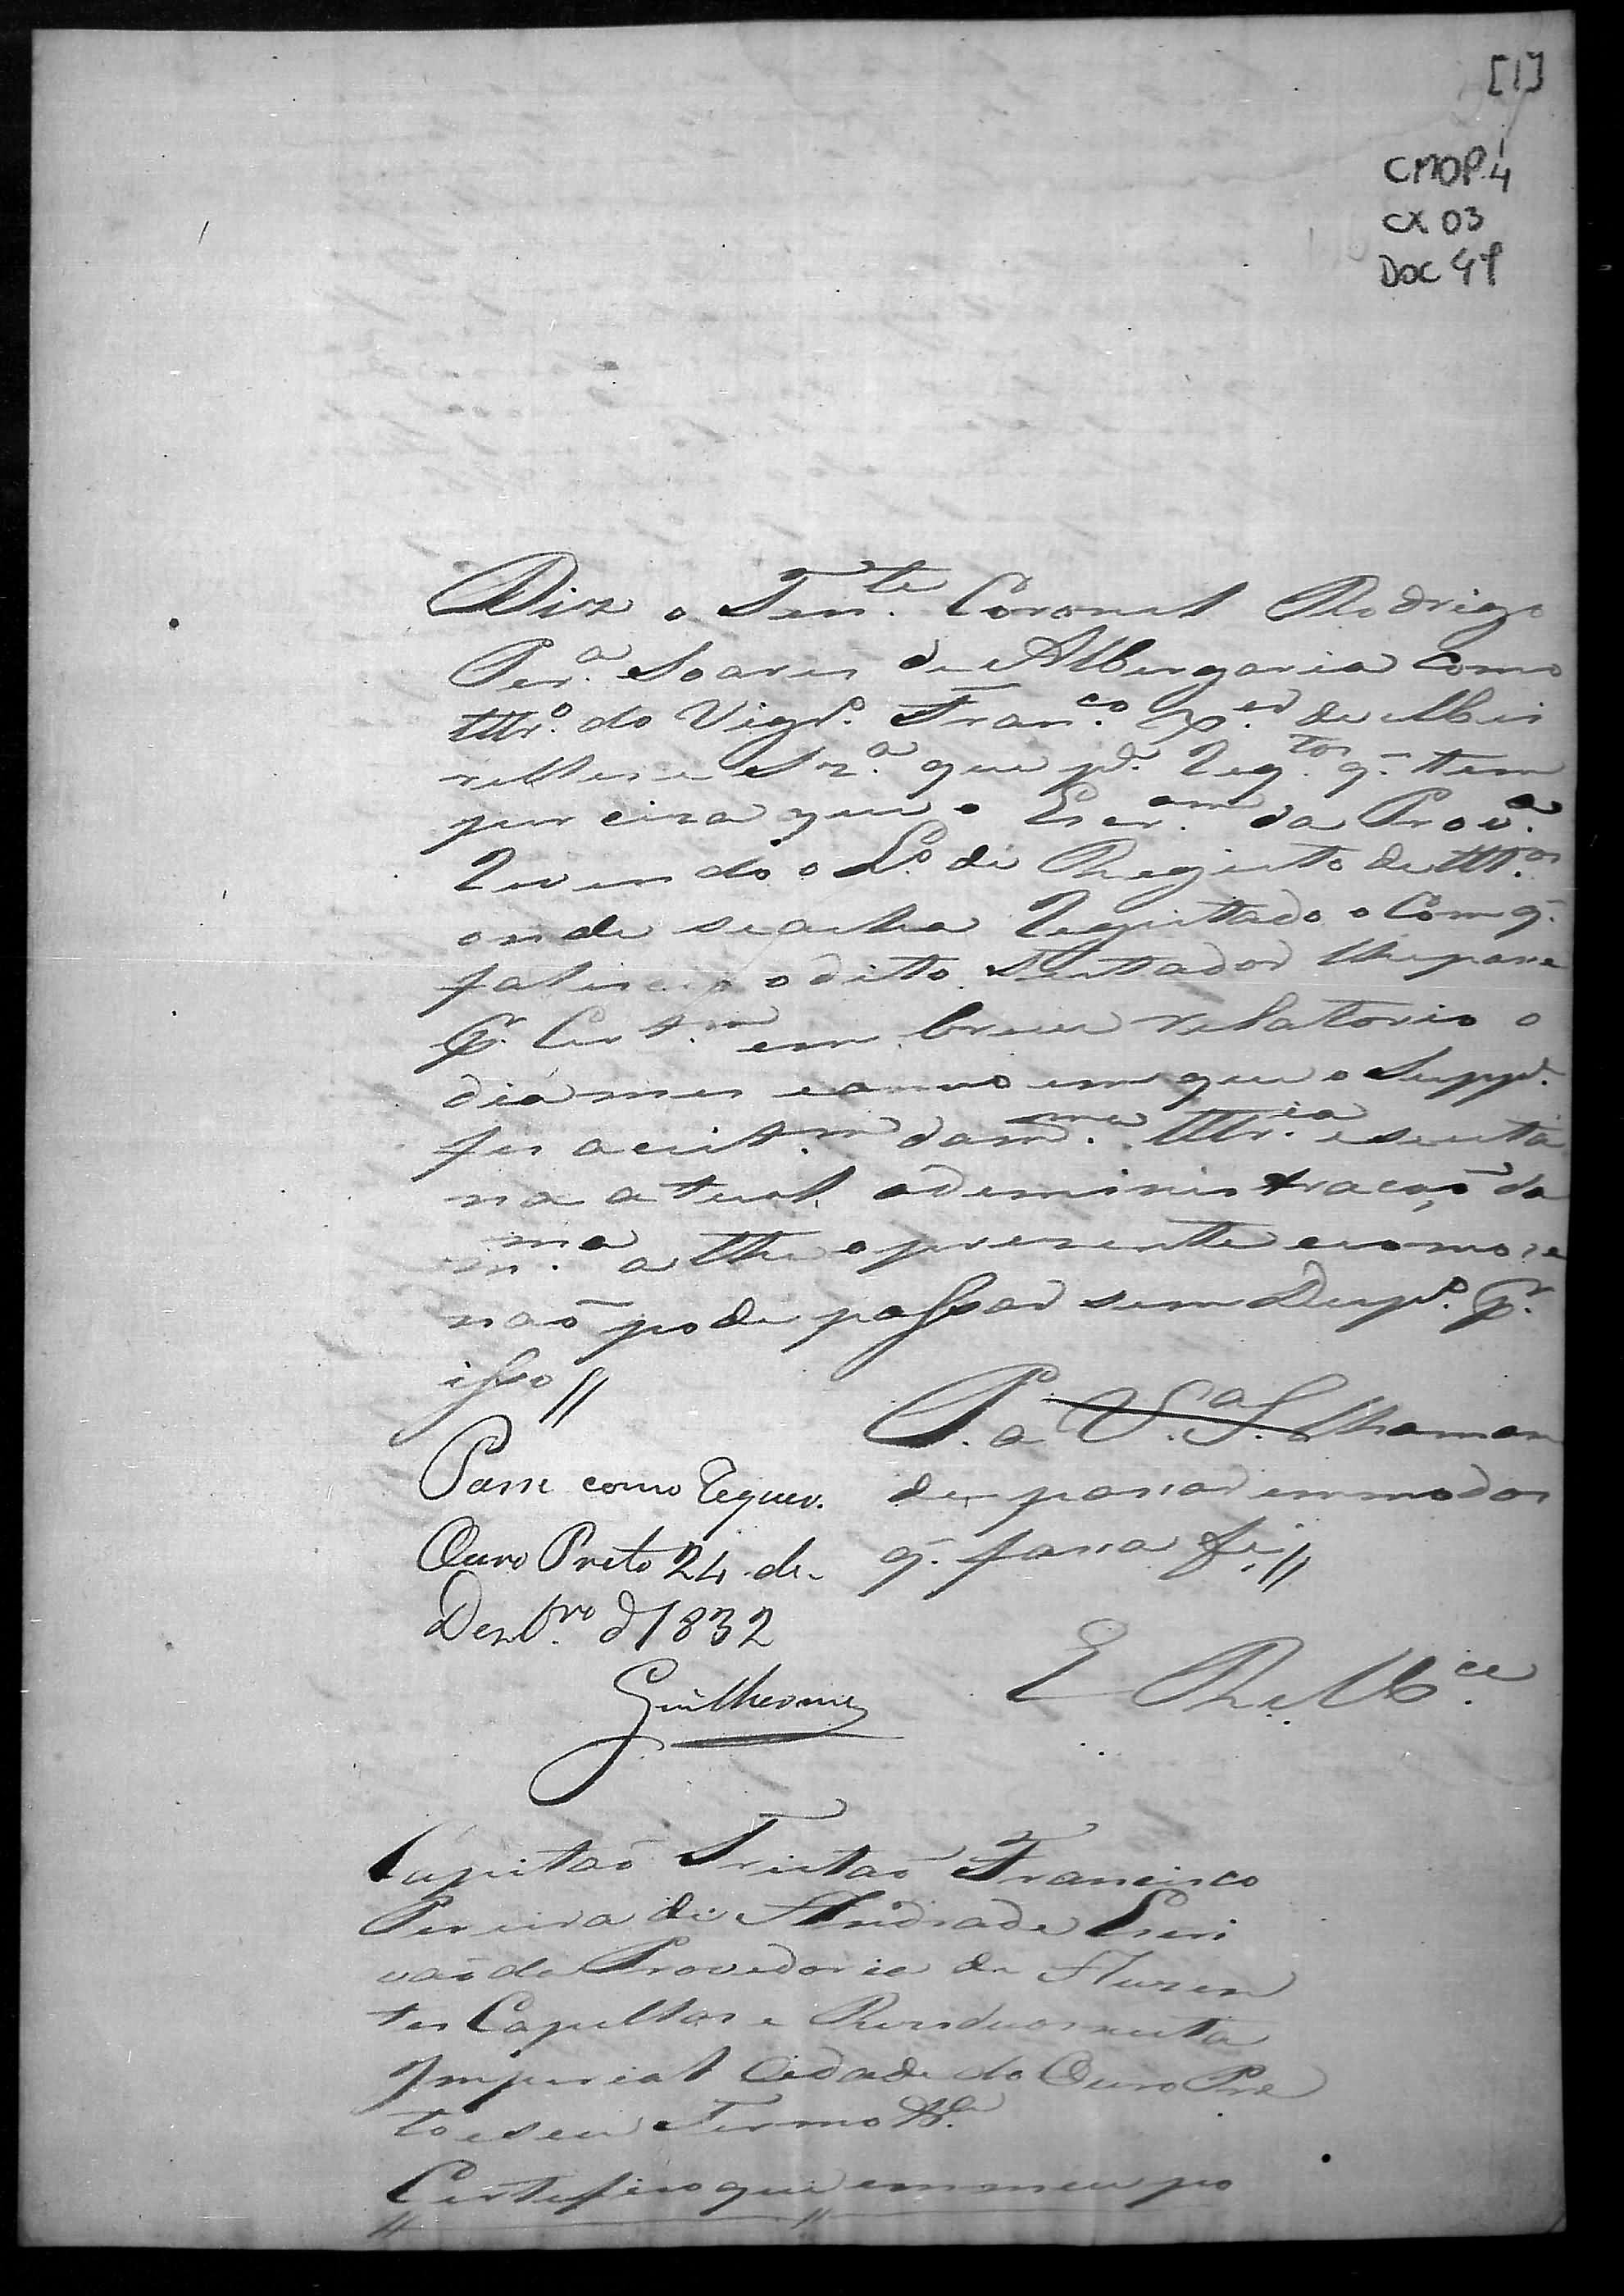 [1]
CMOP.4
CX 03
DOC 49
Diz o Ten.te Coronel Rodrigo
Per.a Soares de Albergaria como
Ttr.o do Vigr.o Fran.co X.er de Mei
relles e Sz.a que p.a Reqtos q. tem
perciza que o Escr.am da Prov.a
Revendo o L.o de Registo de Tt.os
onde se acha Registado o Com q.
faliceio o dito Testador lhe passe
Pr. Cert.m em breve relatorio o
dia mes e anno em que o Supp.e
fes aceit.m da m.ma Ttr.ia e se está
na atual administração da
m.ma athe o prezente e como se
naõ pode passar sem Desp.o Pr.
isso //
P. a V. S.a lhe man
de passar em modo
q. fassa fé //
E R. M.ce
Passe como requer.
Ouro Preto 24 de
Dezbr.o d 1832
Guilherme
Capitaõ Tristaõ Francisco
Pereira de Andrade Escri
vaõ da Provedoria de Auzen
tes Capellas e Reziduos nesta
Imperial Cidade do Ouro Pre
to e seu Termo &.a
Certefico que em meu po